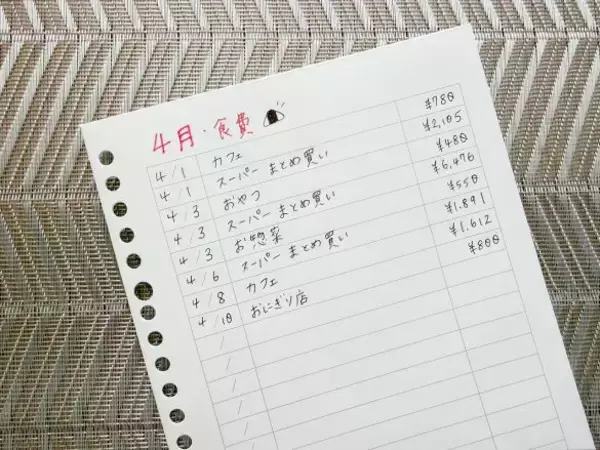 4月・食費
4/1 カフェ ¥780
4/1 スーパー まとめ買い ¥2,105
4/3 おやつ ¥480
4/3 スーパー まとめ買い ¥6,476
4/3 お惣菜 ¥550
4/6 スーパー まとめ買い ¥1,891
4/8 カフェ ¥1,612
4/10 おにぎり店 ¥800
/
/
/
/
/